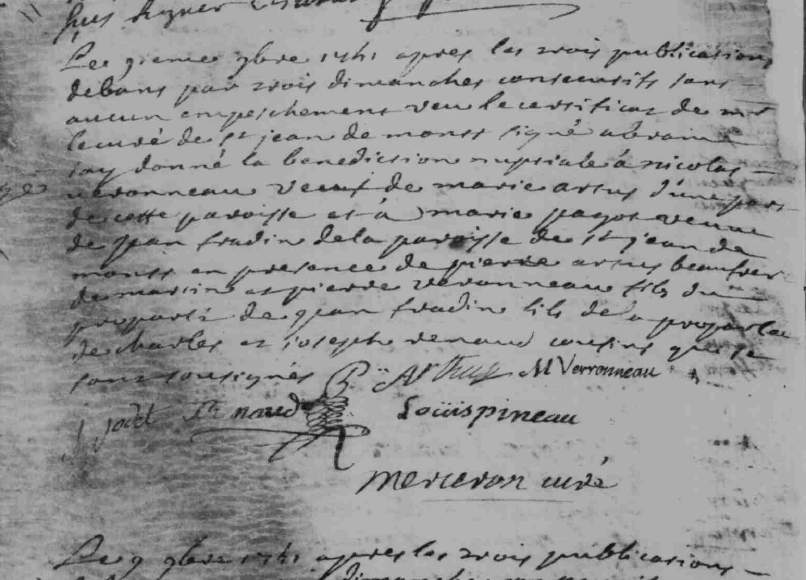 Le 9ieme 9bre 1741 apres les trois publications
de bans par trois dimanches consecutifs sans
aucun empeschement veu le certificat de mr
le curé de st jean de monts signé abrain
jay donné la benediction nuptiale à nicolas
veronneau veuf de marie artus d'une part
de cette paroisse et à marie pajot veuve
de jean fradin de la paroisse de st jean de
monts en presence de pierre artus beaufrere
de martin et pierre veronneau fils du
proparlé de jean fradin fils de la proparlée
de charles et joseph renaud cousins qui se
sont sousignés P Arthus M Verronneau
J renaud
Loüis pineau
merceron curé
Le 9 9bre 1741 apres les trois publications
dimanches